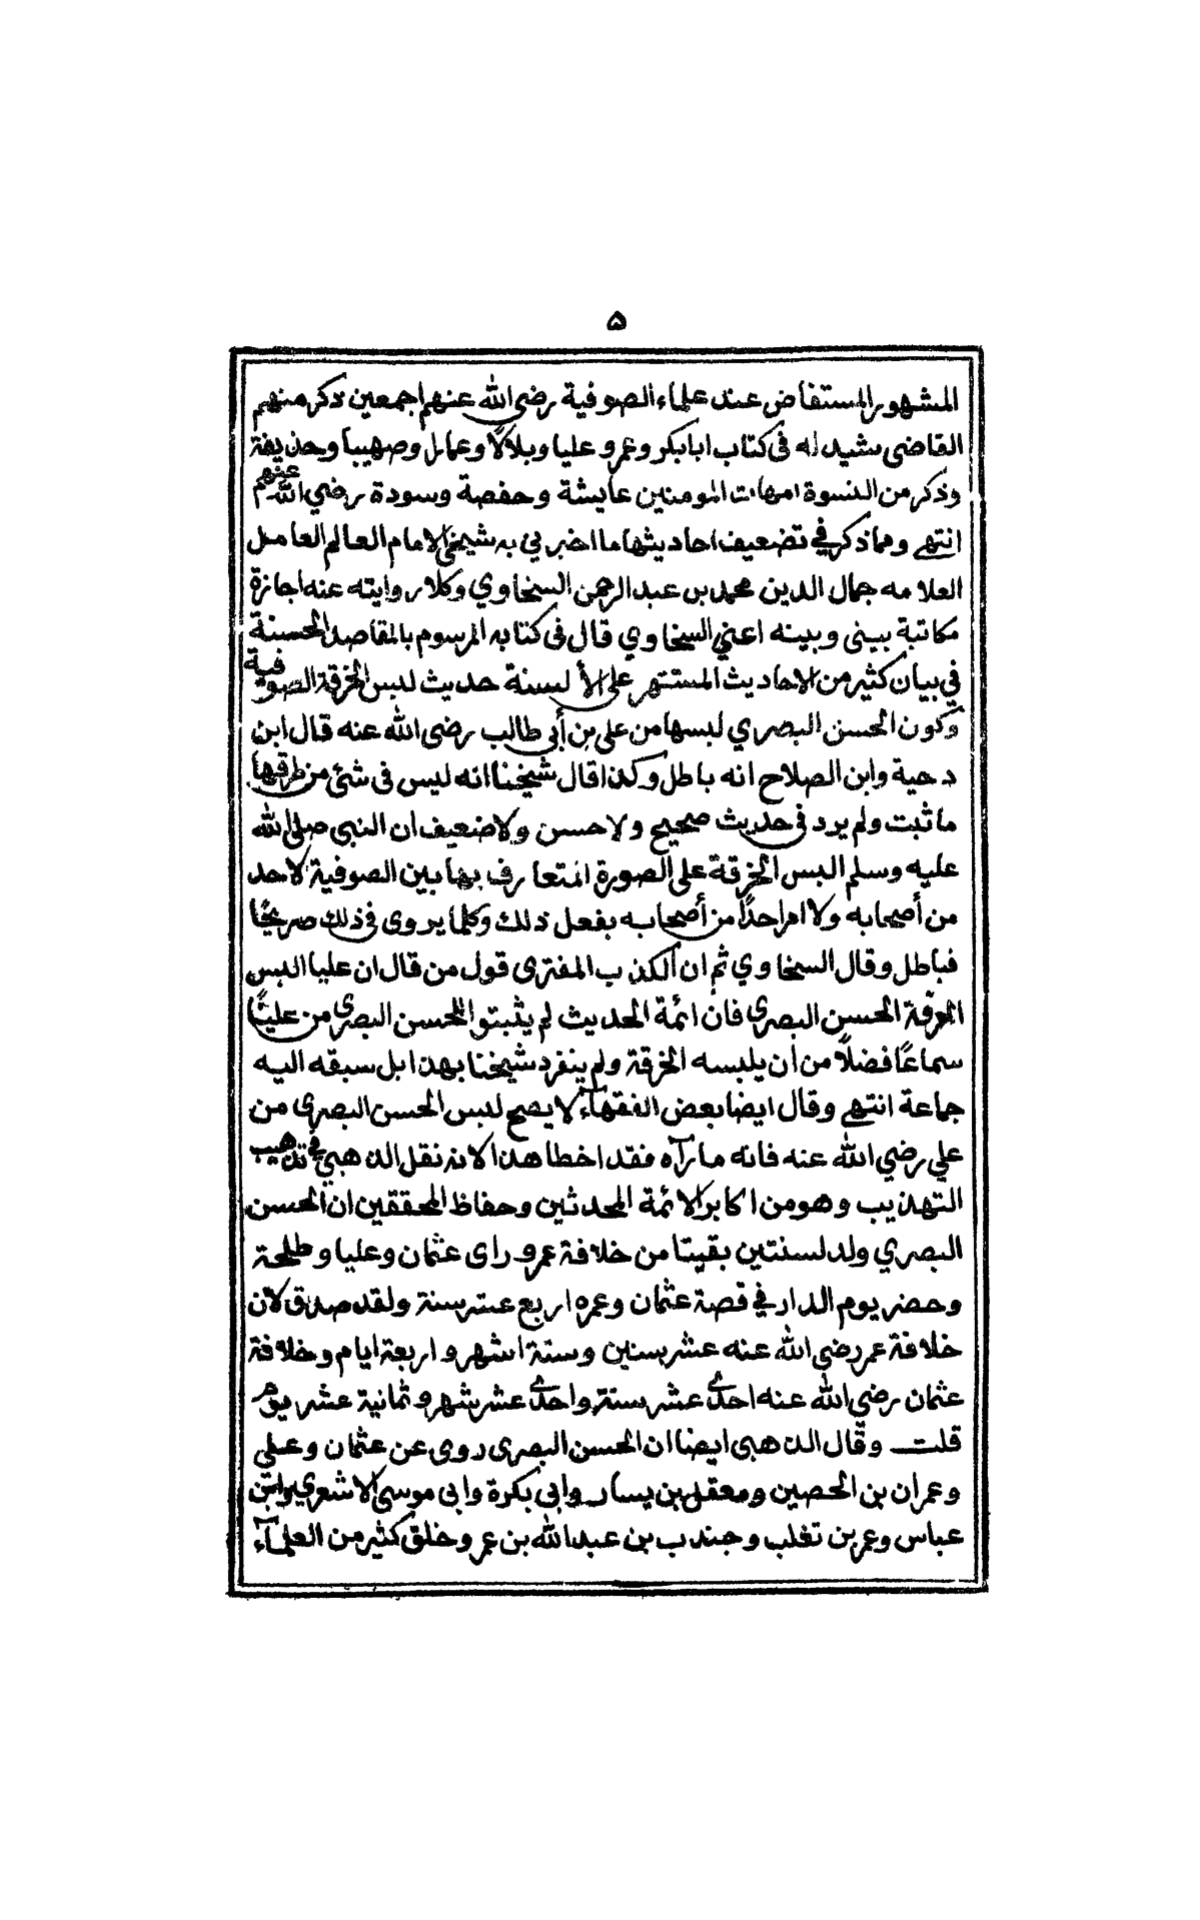 ۵
المشهور المستفاض عند علماء الصوفية رضي الله عنهم اجمعين ذكر منهم
القاضى بشيدله فى كتاب ابابكر وعمرو عليا وبلالًا وعمار وصهيبا وحذيفة
وذكر من النسوة امهات المومنين عايشة وحفصة وسودة رضي الله عنهم
انتهى ومما ذكر في تضعيف احاديثها ما اخبرني به شيخي الامام العالم العامل
العلامه جمال الدين محمد بن عبد الرحمن السخاوي وكلار وايته عنه اجازة
مكاتبة بيني وبينه اعني السخاوي قال فى كتابه المرسوم بالمقاصد الحسنة
في بيان كثير من الاحاديث المشتهر على الألسنة حديث لبس الخرقة الصوفية
وكون الحسن البصري لبسها من على بن أبي طالب رضى الله عنه قال ابن
دحية وابن الصلاح انه باطل وكذا قال شيخنا انه ليس فى شئ من طرقها
ما ثبت ولم يرد فى حديث صحيح ولا حسن ولا ضعيف ان النبي صلى الله
عليه وسلم البس الخرقة على الصورة المتعارف بها بين الصوفية لاحد
من أصحابه ولا امر احدًا من أصحابه بفعل ذلك وكلما يروى فى ذلك صريحًا
فباطل وقال السخاوي ثم ان الكذب المفترى قول من قال ان عليا البس
الخرقة الحسن البصري فان ائمة الحديث لم يثبتوا للحسن البصري من عليًّا
سماعًا فضلًا من أن يلبسه الخرقة ولم ينفرد شيخنا بهذا بل سبقه اليه
جماعة انتهى وقال ايضا بعض الفقهاء لا يصح لبس الحسن البصرى من
علي رضي الله عنه فانه ما رآه فقد اخطا هذا لانه نقل الذهبي في تذهيب
التهذيب وهو من اكابر الائمة المحدثين وحفاظ المحققين ان الحسن
البصري ولد لسنتين بقيتا من خلافة عمرو راى عثمان وعليا وطلحة
وحضر يوم الدار في قصة عثمان وعمره اربع عشر سنة ولقد صدق لان
خلافة عمر رضي الله عنه عشر سنين وستة اشهر و اربعة ايام وخلافة
عثمان رضي الله عنه احدى عشر سنة واحدى عشر شهر و ثمانية عشر يوم
قلت وقال الذهبى ايضا ان الحسن البصرى روى عن عثمان وعلي
وعمران بن الحصين ومعقل بن يسار وابي بكرة وابى موسى الاشعري وابن
عباس وعمر بن تغلب وجندب بن عبد الله بن عمر وخلق كثير من العلمآء